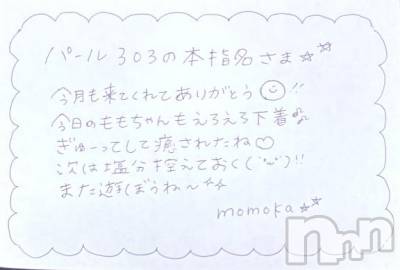 パール303の本指名さま☆☆
今月も来てくれてありがとう☺!!
今日のももちゃんもえろえろ下着♪
ぎゅーってして癒されたね♡
次は塩分控えておく(˙꒳˙)!!
また遊ぼうね〜☆☆
momoka☆☆
nnn